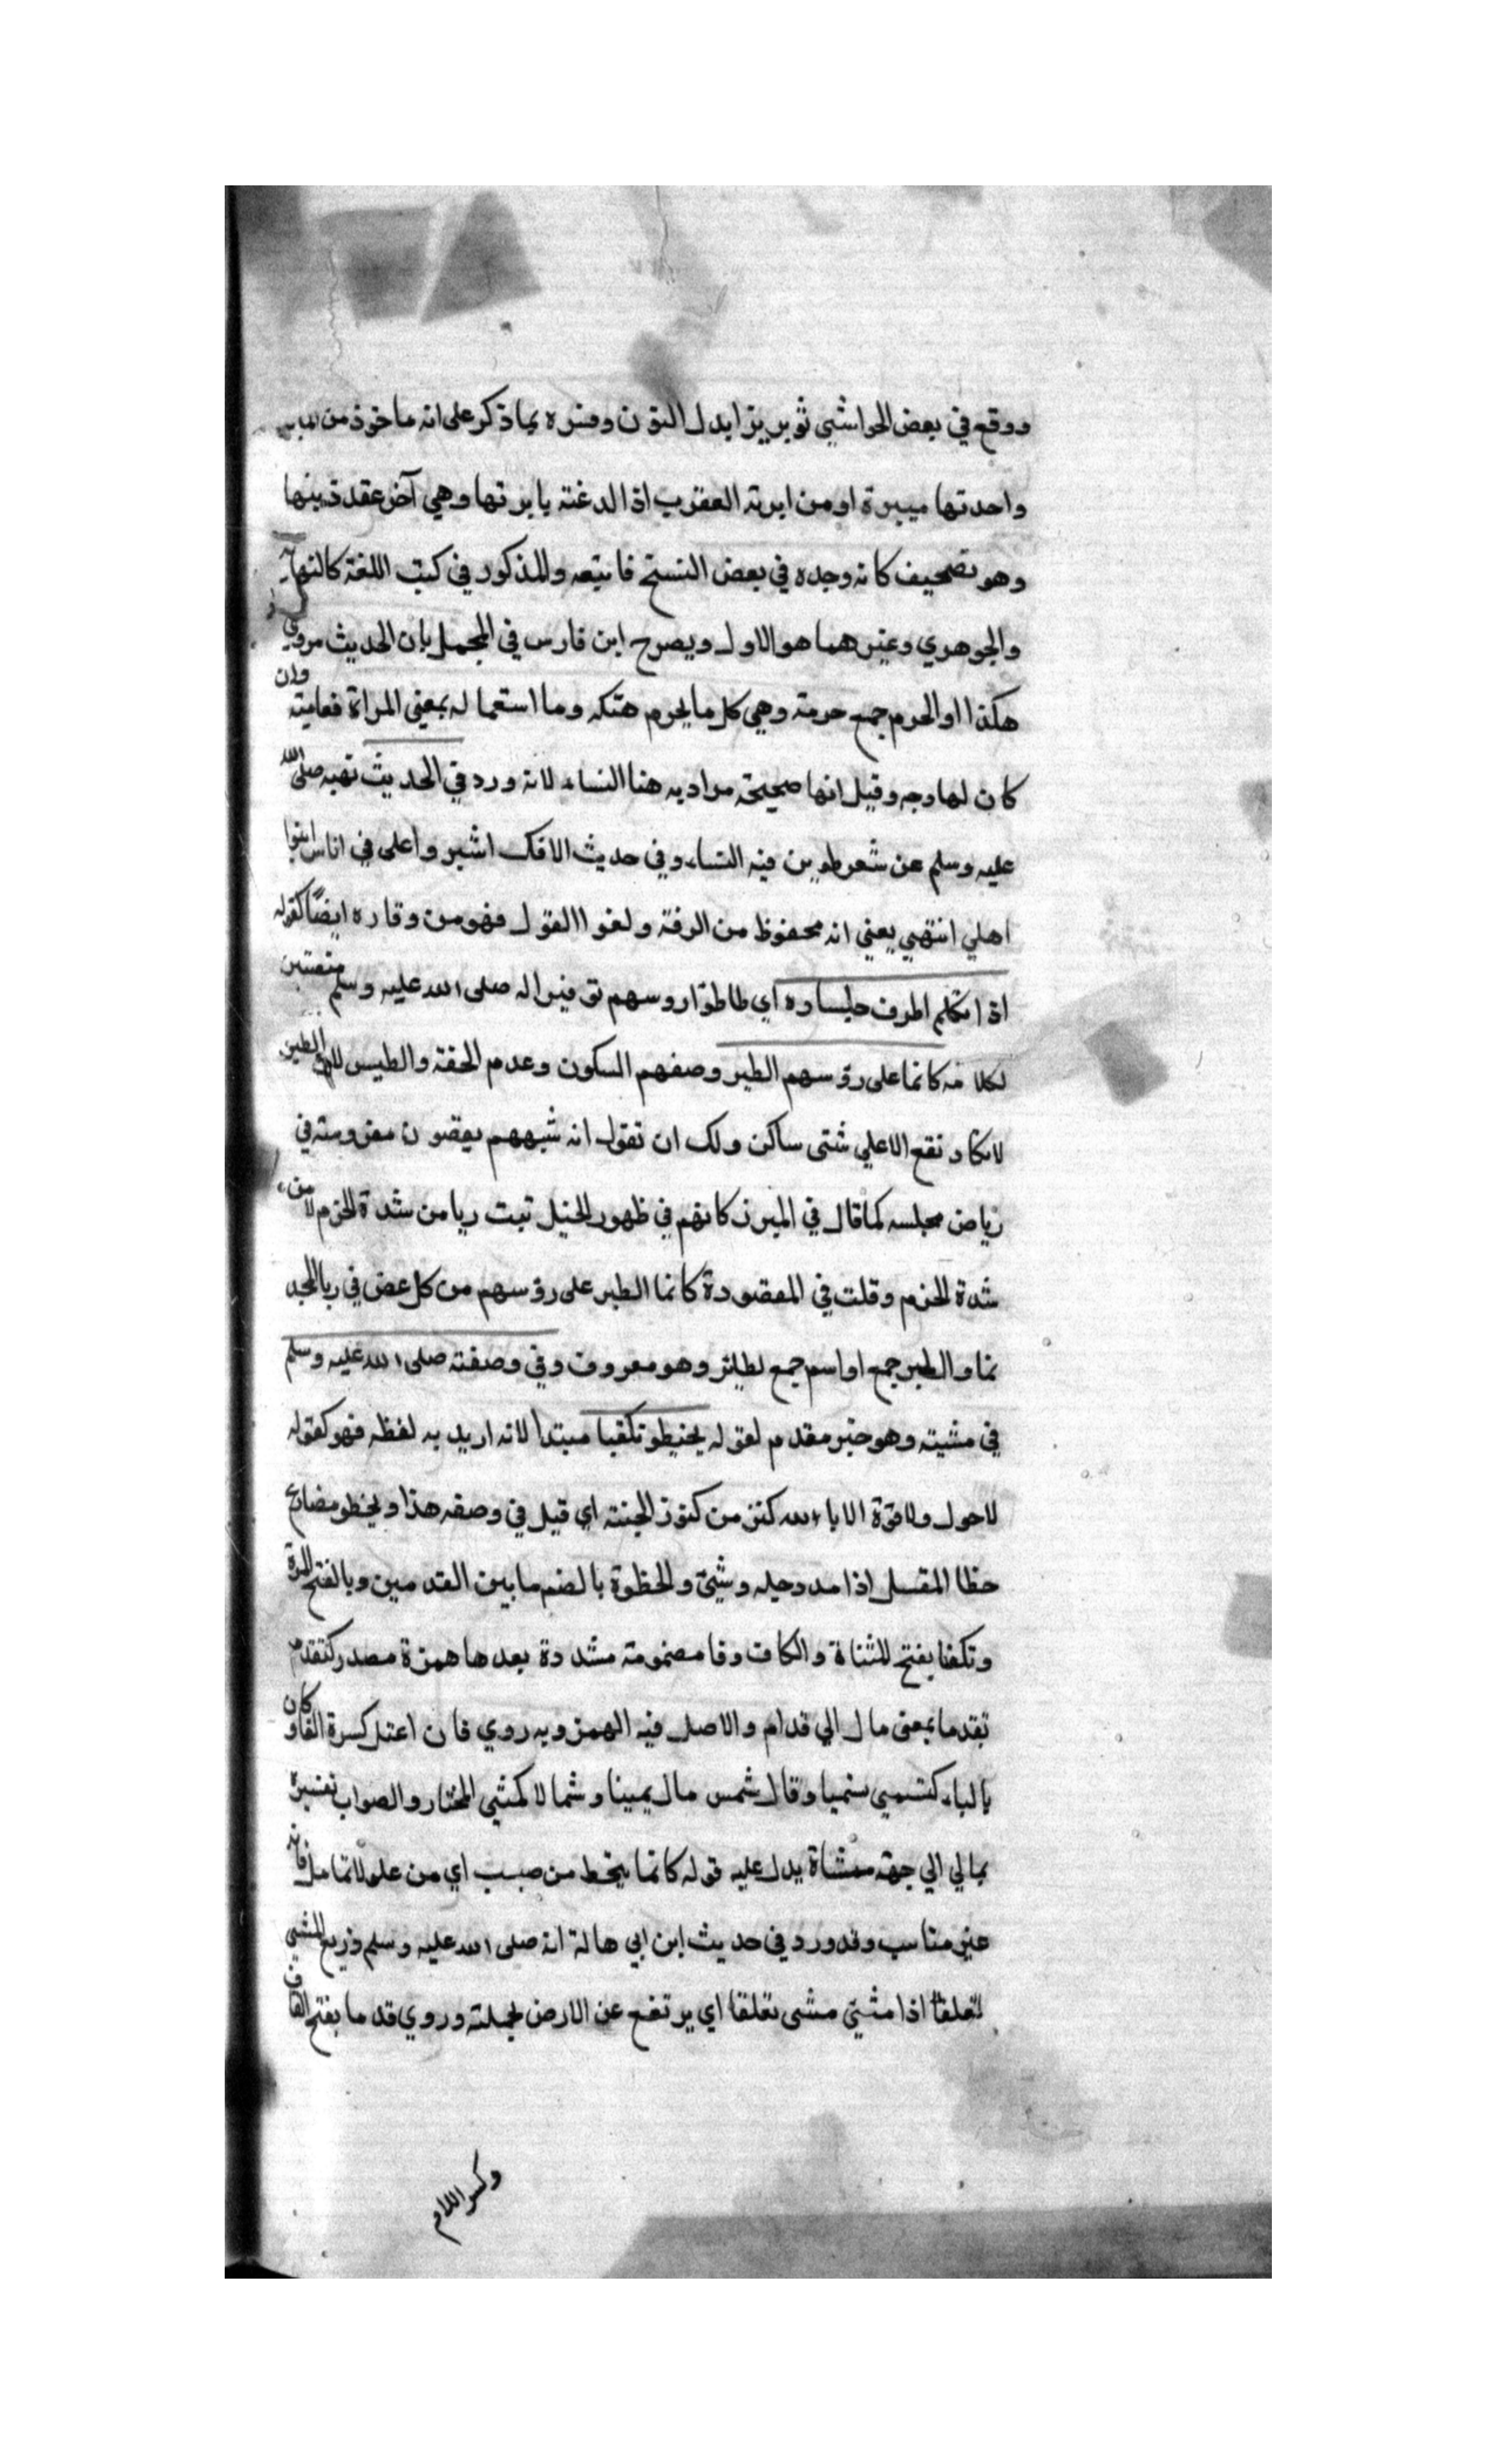 ووقع في بعض الحواشي ثوبريزا بدل النون وفسره بماذكر على انه ماخوذ من
واحدتها ميبرة اومن ابرته العقرب اذا لدغته يابرتها وهي آخر عقد ذنبها
وهو تصحيف كانه وجده في بعض النسخ فاتبعه والمذكور في كتب اللغة كالنهاية
والجوهري وغيرهما هو الاول ويصرح ابن فارس في المجمل بان الحديث مروي
هكذا او الحرم جمع حرمته وهي كل مايحرم هتكه وما استعماله بمعني المراة فعاميته وان
كان لها وجه وقيل انها صحيحة مراد به هنا النساء لانه ورد في الحديث نهيه صلى الله
عليه وسلم عن شعر طوبن فيه النساء وفي حديث الافك اشير واعلى في اناس ابنوا
اهلي انتهي يعني انه محفوظ من الرفته ولغوا القول فهو من وقاره ايضًا كقوله
اذا تكلم اطرف جلساوه اي طاطؤا روسهم توفيرا له صلى الله عليه وسلم منصتين
لكلامه كانما على رؤسهم الطير وصفهم السكون وعدم الخفة والطيس لان الطير
لا تكاد تقع الاعلي شئى ساكن ولك ان تقول انه شبههم بغصون مغروسته في
رياض مجلسه كما قال في الميرز كانهم في ظهور الخيل تبت ربا من شدة الحزم لا من
شدة الحزم وقلت في المقصورة كانما الطير على رؤسهم من كل غض في ربا المجد
نما والطير جمع او اسم جمع لطائر وهو معروف وفي وصفته صلى الله عليه وسلم
في مشيته وهو خبر مقدم لقوله يخطو تكفيا مبتدا لانه اريد به لفظه فهو كقوله
لاحول ولا قوة الا بالله كنز من كنوز الجنته اي قيل في وصفه هذا ويخطو مضارع
خطا المقسل اذا مد رجله وشئ والخطوة بالضم ما بين القدمين وبالفتح المرة
وتكفا بفتح المثناة والكاف وفا مضمومته مشددة بعدها همزة مصدر كتقدم
تقدما بمعني مال الي قدام والاصل فيه الهمز وبه روي فان اعتل كسرة الفاو كان
بالياء كتسمي تسميا وقال شمس مال يمينا وشمالا كمشي المختار والصواب تفسيره
بمالي الي جهته ممشاة يدل عليه قوله كانما ينحط من صبب اي من علو لا تمامل فانه
غير مناسب وقد ورد في حديث ابن ابي هالة انه صلى الله عليه وسلم ذريع المشي
تقلقا اذا مشئ مشى تقلقا اي يرتفع عن الارض بجملته وروي قد ما بفتح القاف
وكسر اللام